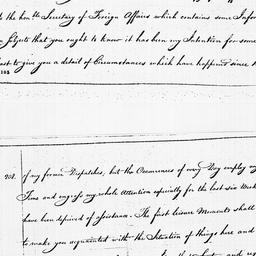 the hon.ble Secretary of Foreign Affairs which contains some Infor
Objects that you ought to know it has been my Intention for some
to give you a detail of Circumstances which have happened since
105
208. of my former Dispatches, but the Occurrences of every Day employ my
Time and engross my whole Attention especially for the last six Week
have been deprived of assistance. The first leisure Moments shall
to make you acquainted with the Situation of things here and